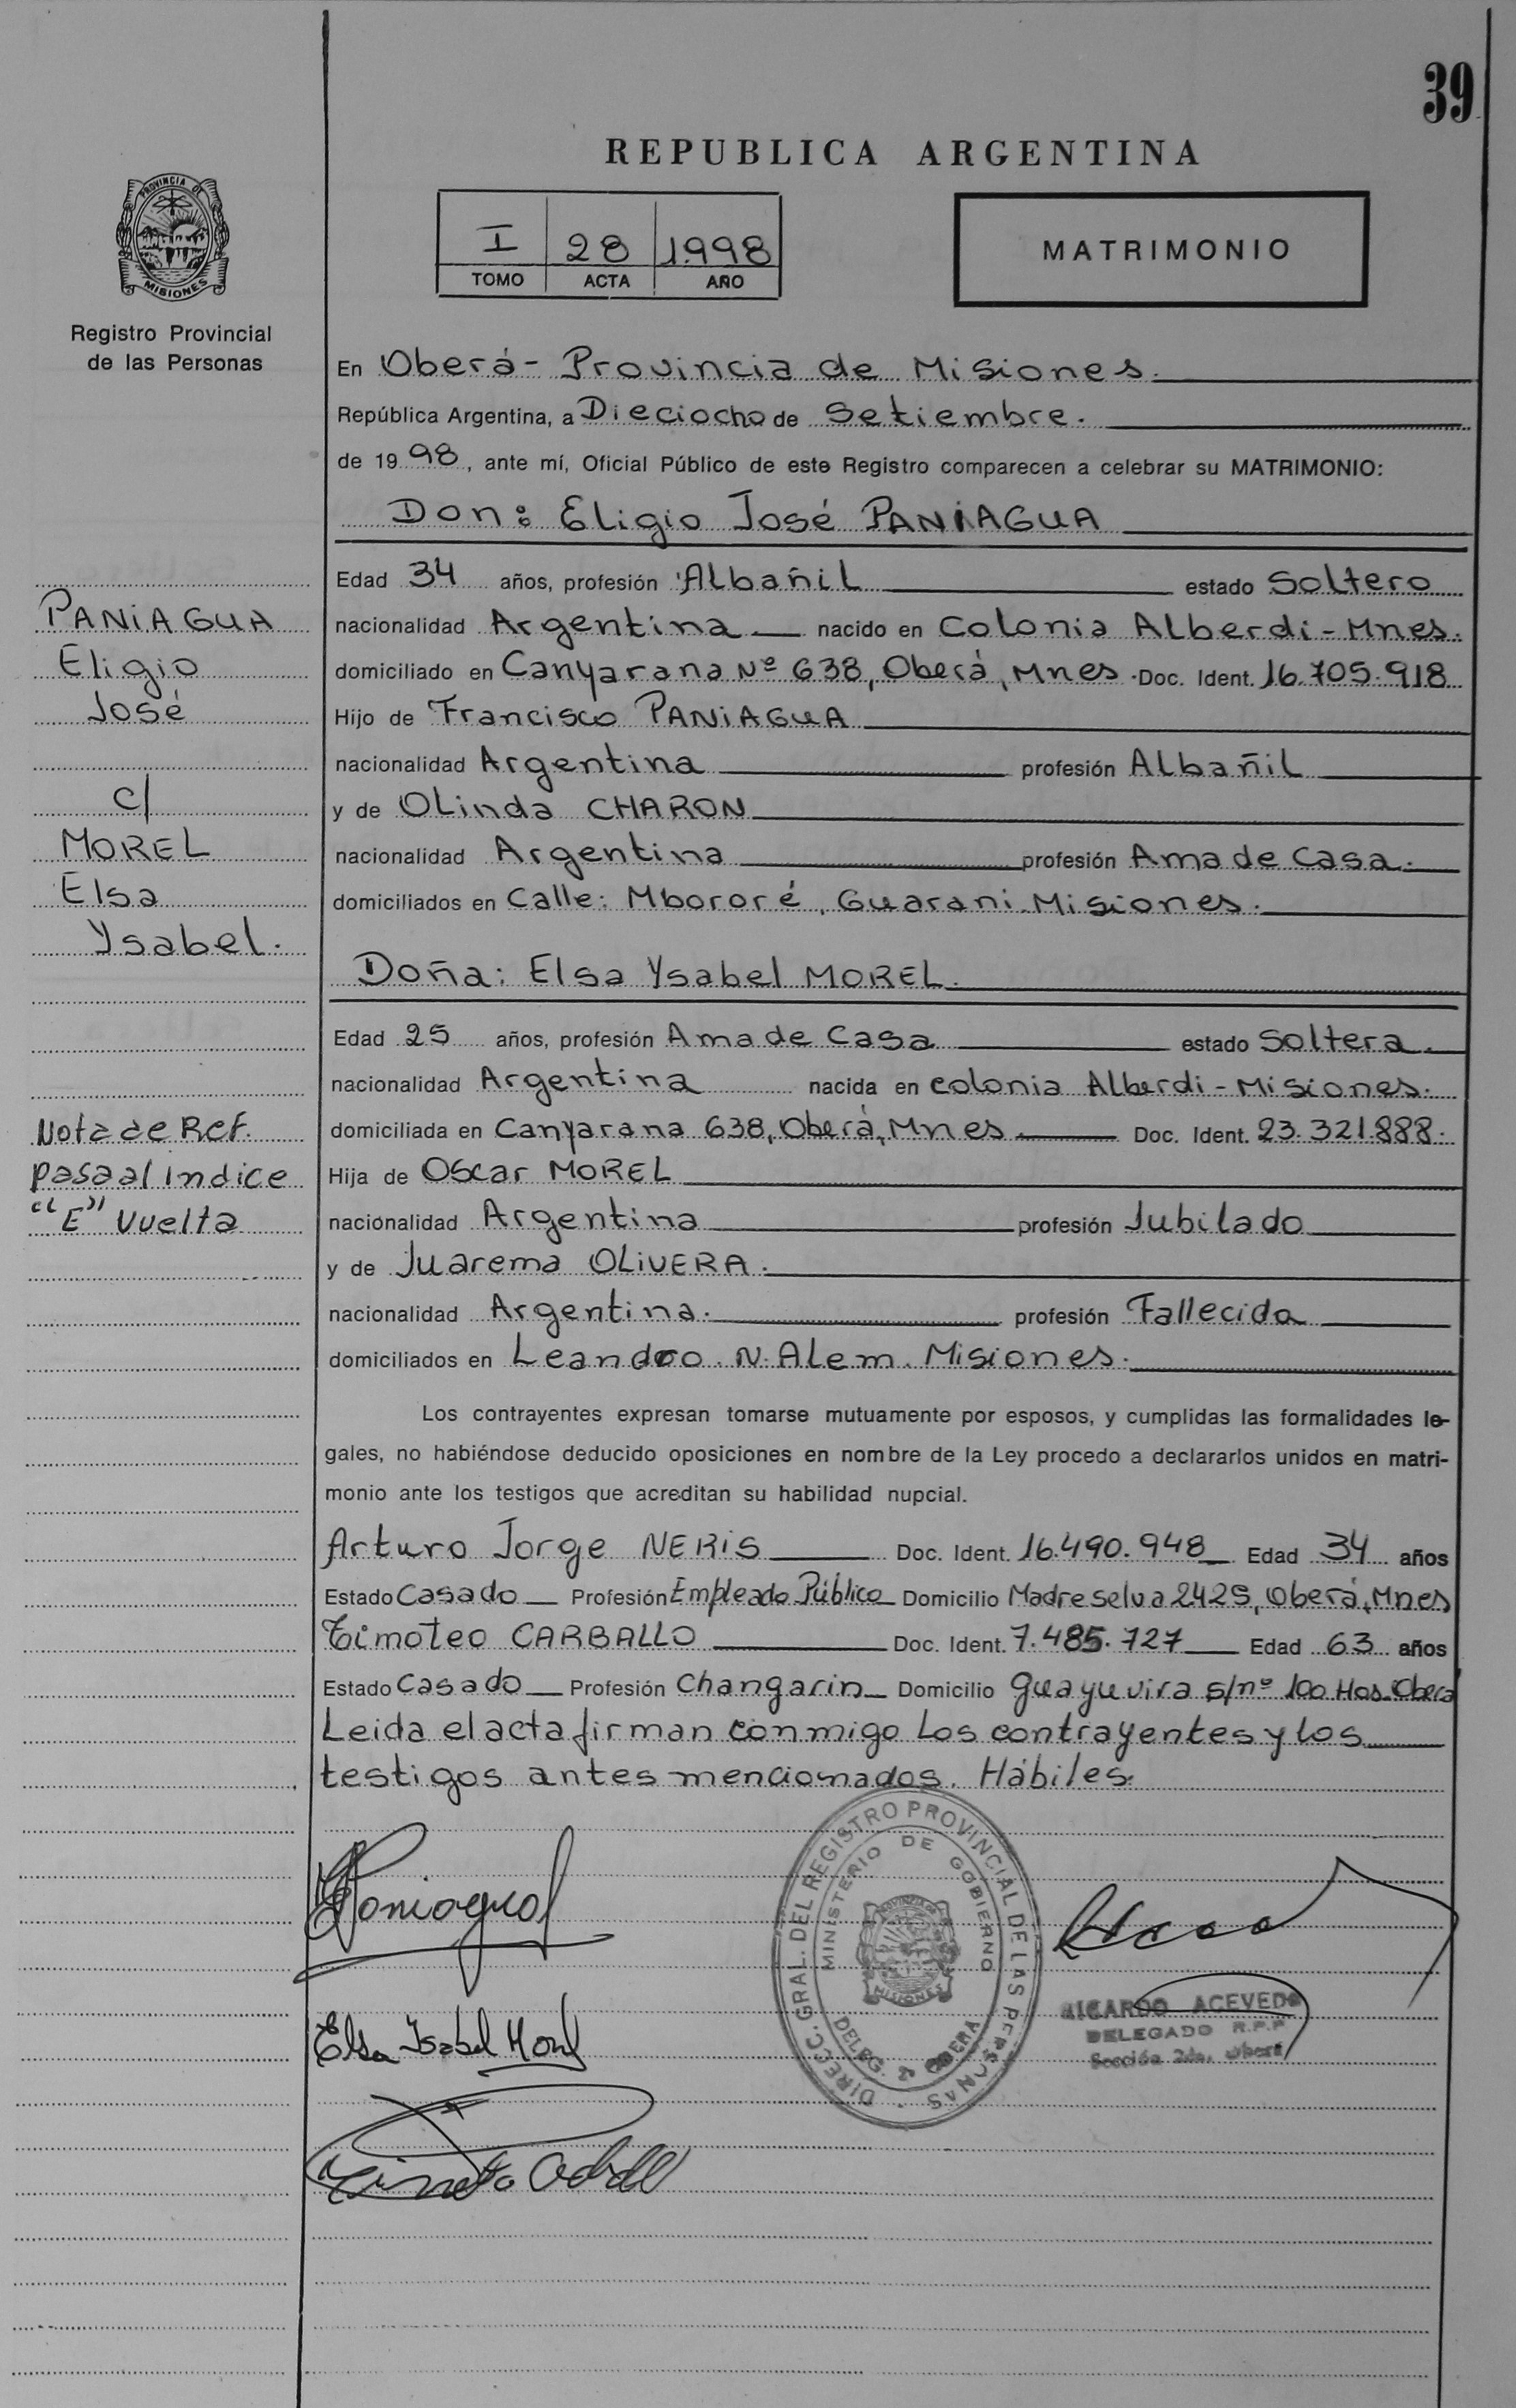 39
REPUBLICA ARGENTINA
PROVINCIA DE
MISIONES
Registro Provincial
de las Personas
I 28 1.998
TOMO ACTA AÑO
MATRIMONIO
En Oberá - Provincia de Misiones.
República Argentina, a Dieciocho de Setiembre.
de 1998, ante mí, Oficial Público de este Registro comparecen a celebrar su MATRIMONIO:
Don: Eligio José PANIAGUA
Edad 34 años, profesión Albañil estado Soltero
nacionalidad Argentina nacido en Colonia Alberdi - Mnes.
domiciliado en Canyarana Nº 638, Oberá, Mnes. Doc. Ident. 16.705.918
Hijo de Francisco PANIAGUA
nacionalidad Argentina profesión Albañil
y de Olinda CHARON
nacionalidad Argentina profesión Ama de Casa.
domiciliados en Calle: Mbororé, Guarani. Misiones.
Doña: Elsa Ysabel MOREL.
Edad 25 años, profesión Ama de Casa estado Soltera.
nacionalidad Argentina nacida en colonia Alberdi - Misiones.
domiciliada en Canyarana 638, Oberá, Mnes Doc. Ident. 23.321.888.
Hija de Oscar MOREL
nacionalidad Argentina profesión Jubilado
y de Juarema OLIVERA.
nacionalidad Argentina. profesión Fallecida
domiciliados en Leandro. N. Alem. Misiones.
PANIAGUA
Eligio
José
c/
MOREL
Elsa
Ysabel.
Nota de Ref.
pasa al Indice
"E" Vuelta
Los contrayentes expresan tomarse mutuamente por esposos, y cumplidas las formalidades le-
gales, no habiéndose deducido oposiciones en nombre de la Ley procedo a declararlos unidos en matri-
monio ante los testigos que acreditan su habilidad nupcial.
Arturo Jorge NERIS Doc. Ident. 16.490.948 Edad 34 años
Estado Casado Profesión Empleado Público Domicilio Madreselva 2425, Oberá, Mnes
Timoteo CARBALLO Doc. Ident. 7.485.727 Edad 63 años
Estado Casado Profesión Changarin Domicilio Guayuvira s/nº 100 Has. Oberá
Leida el acta firman conmigo Los contrayentes y los
testigos antes mencionados. Hábiles.
Paniagua
DIRECC. GRAL. DEL REGISTRO PROVINCIAL DE LAS PERSONAS
MINISTERIO DE GOBIERNO
MISIONES
DELEG. 2 OBERA
RICARDO ACEVEDO
DELEGADO R.P.P
Sección 2da. Oberá
Elsa Ysabel Morel